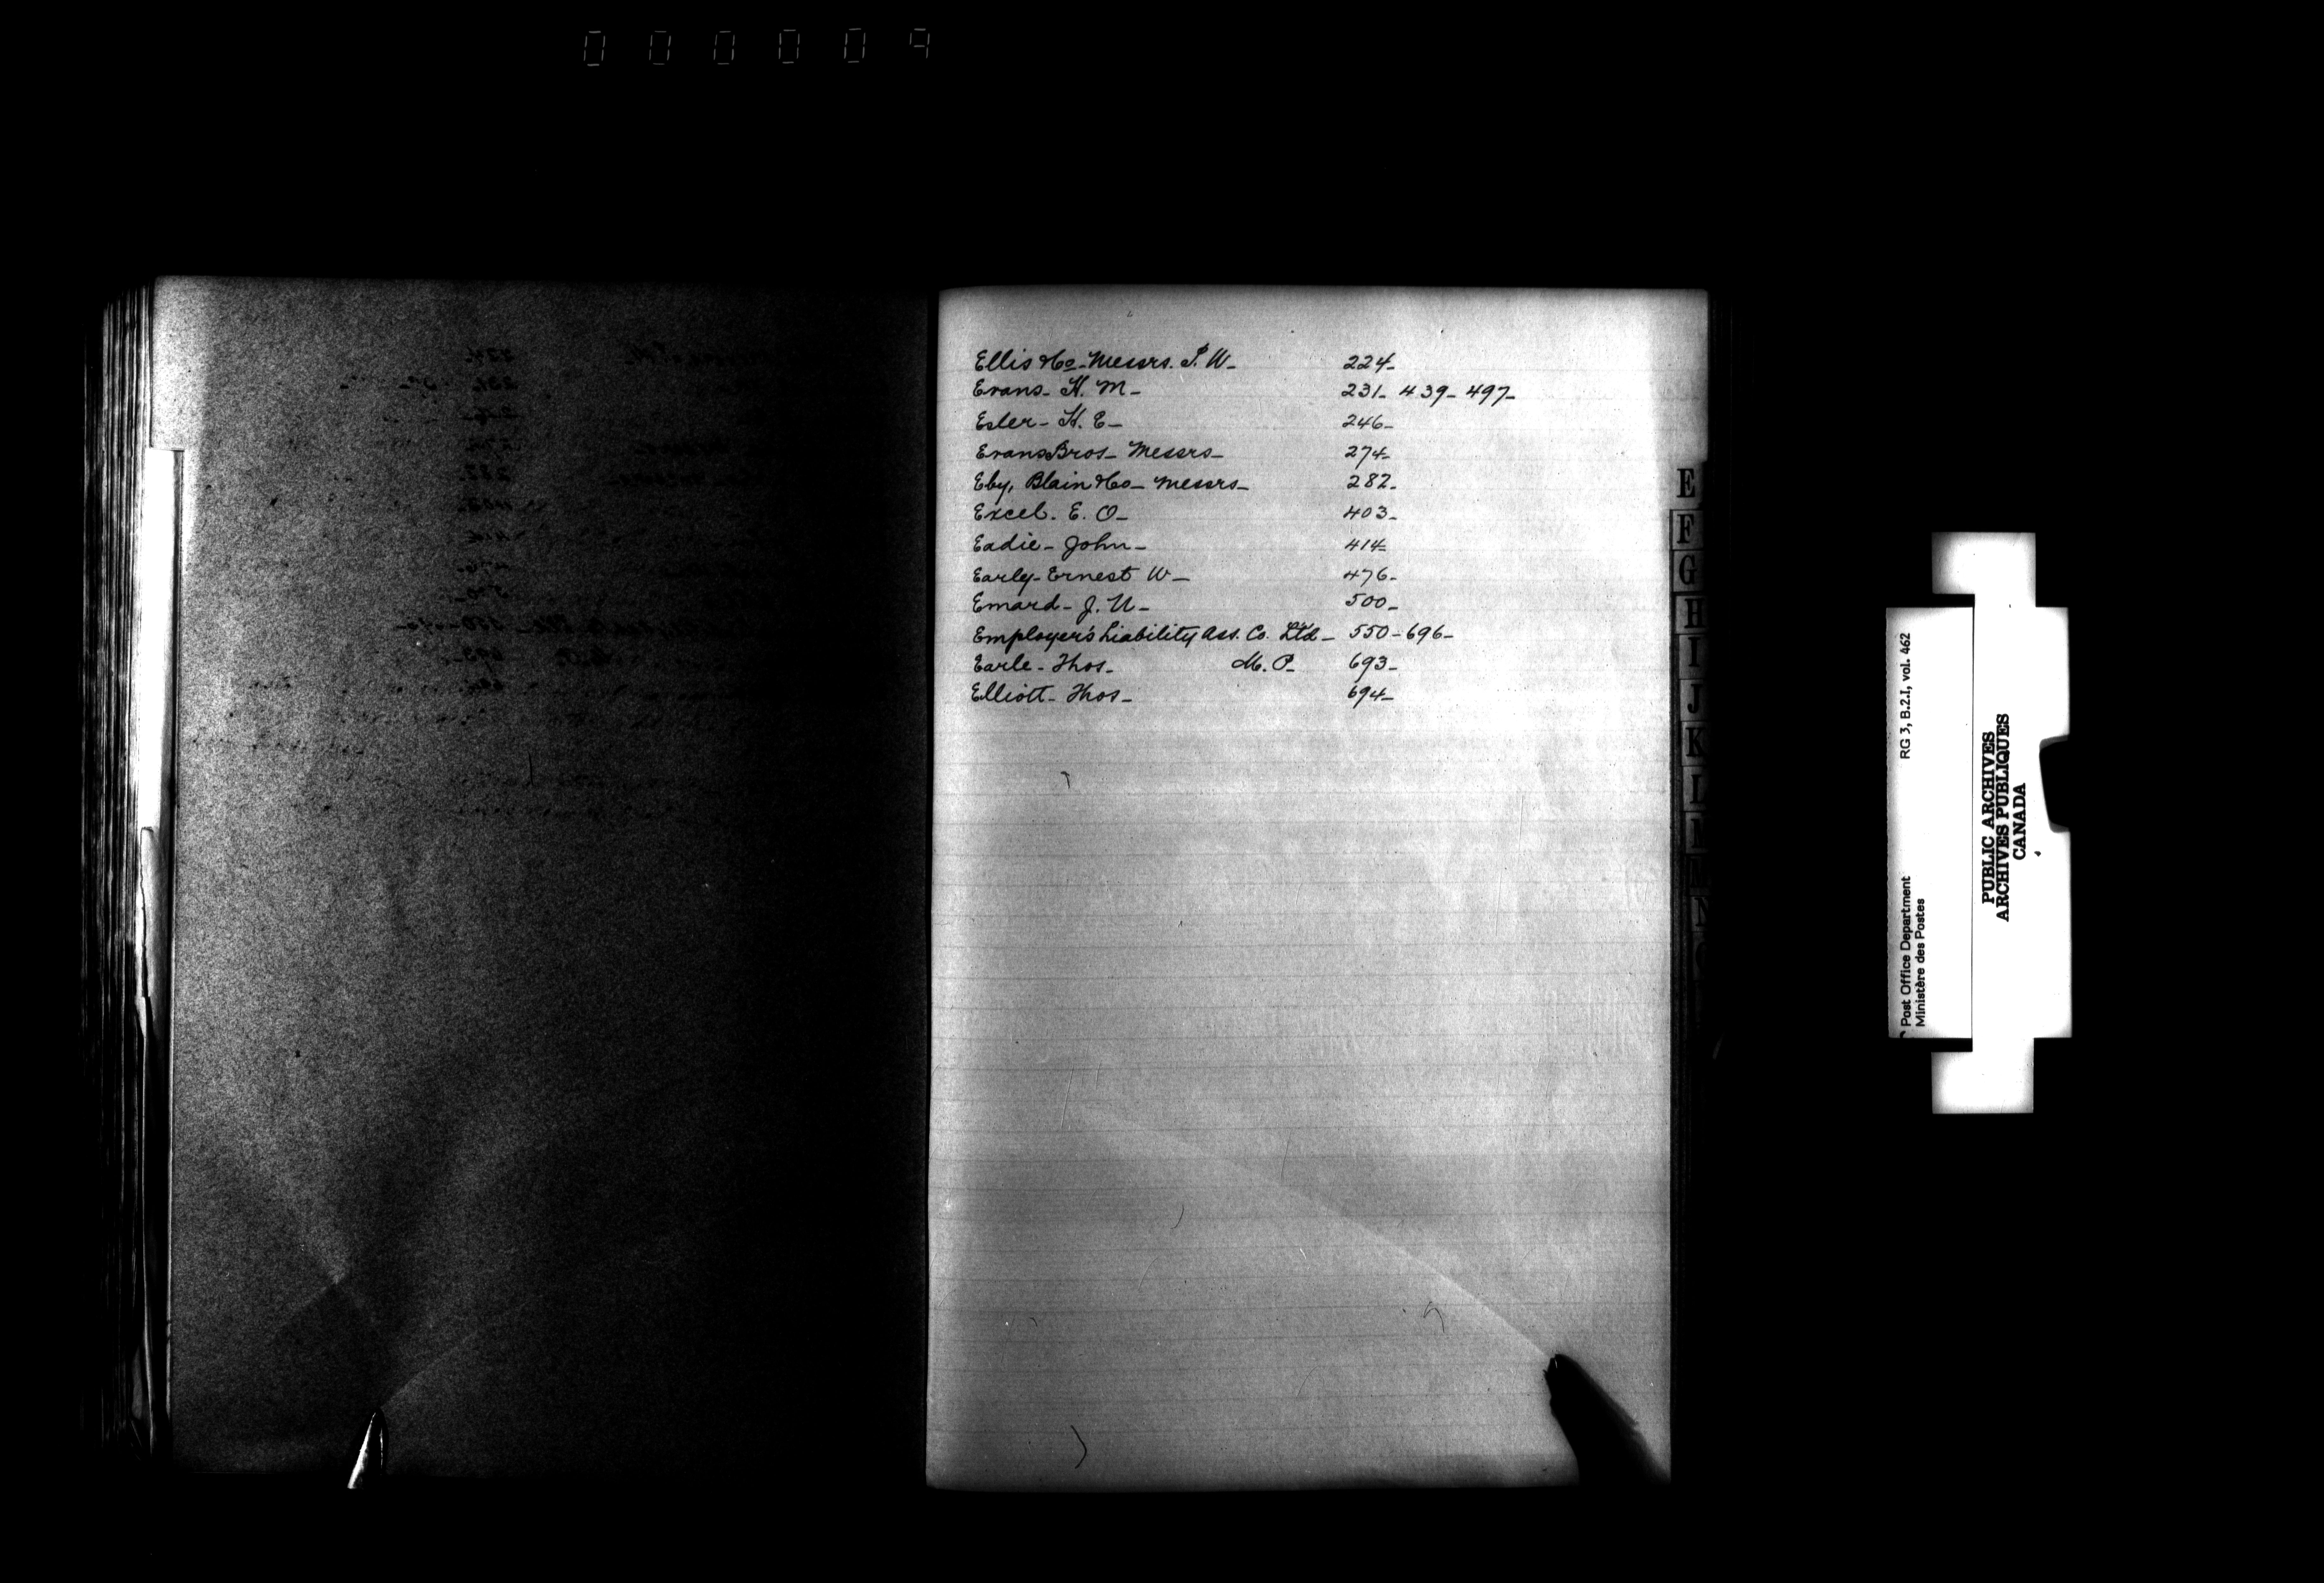 000009
Ellis & Co - Messrs. P. W - 224 -
Evans - H. M - 231 - 439 - 497 -
Esler - H. E - 246 -
Evans Bros - Messrs - 274 -
Eby, Blain & Co - Messrs - 282 -
Excel. E. O - 403 -
Eadie - John - 414 -
Early - Ernest W - 476 -
Emard - J. U - 500 -
Employer's Liability Ass. Co. Ltd - 550 - 696 -
Earle - Thos - M. P. - 693 -
Elliott - Thos - 694 -
E
F
G
H
I
J
K
Post Office Department RG 3, B.2.I, vol. 462
Ministère des Postes
PUBLIC ARCHIVES
ARCHIVES PUBLIQUES
CANADA